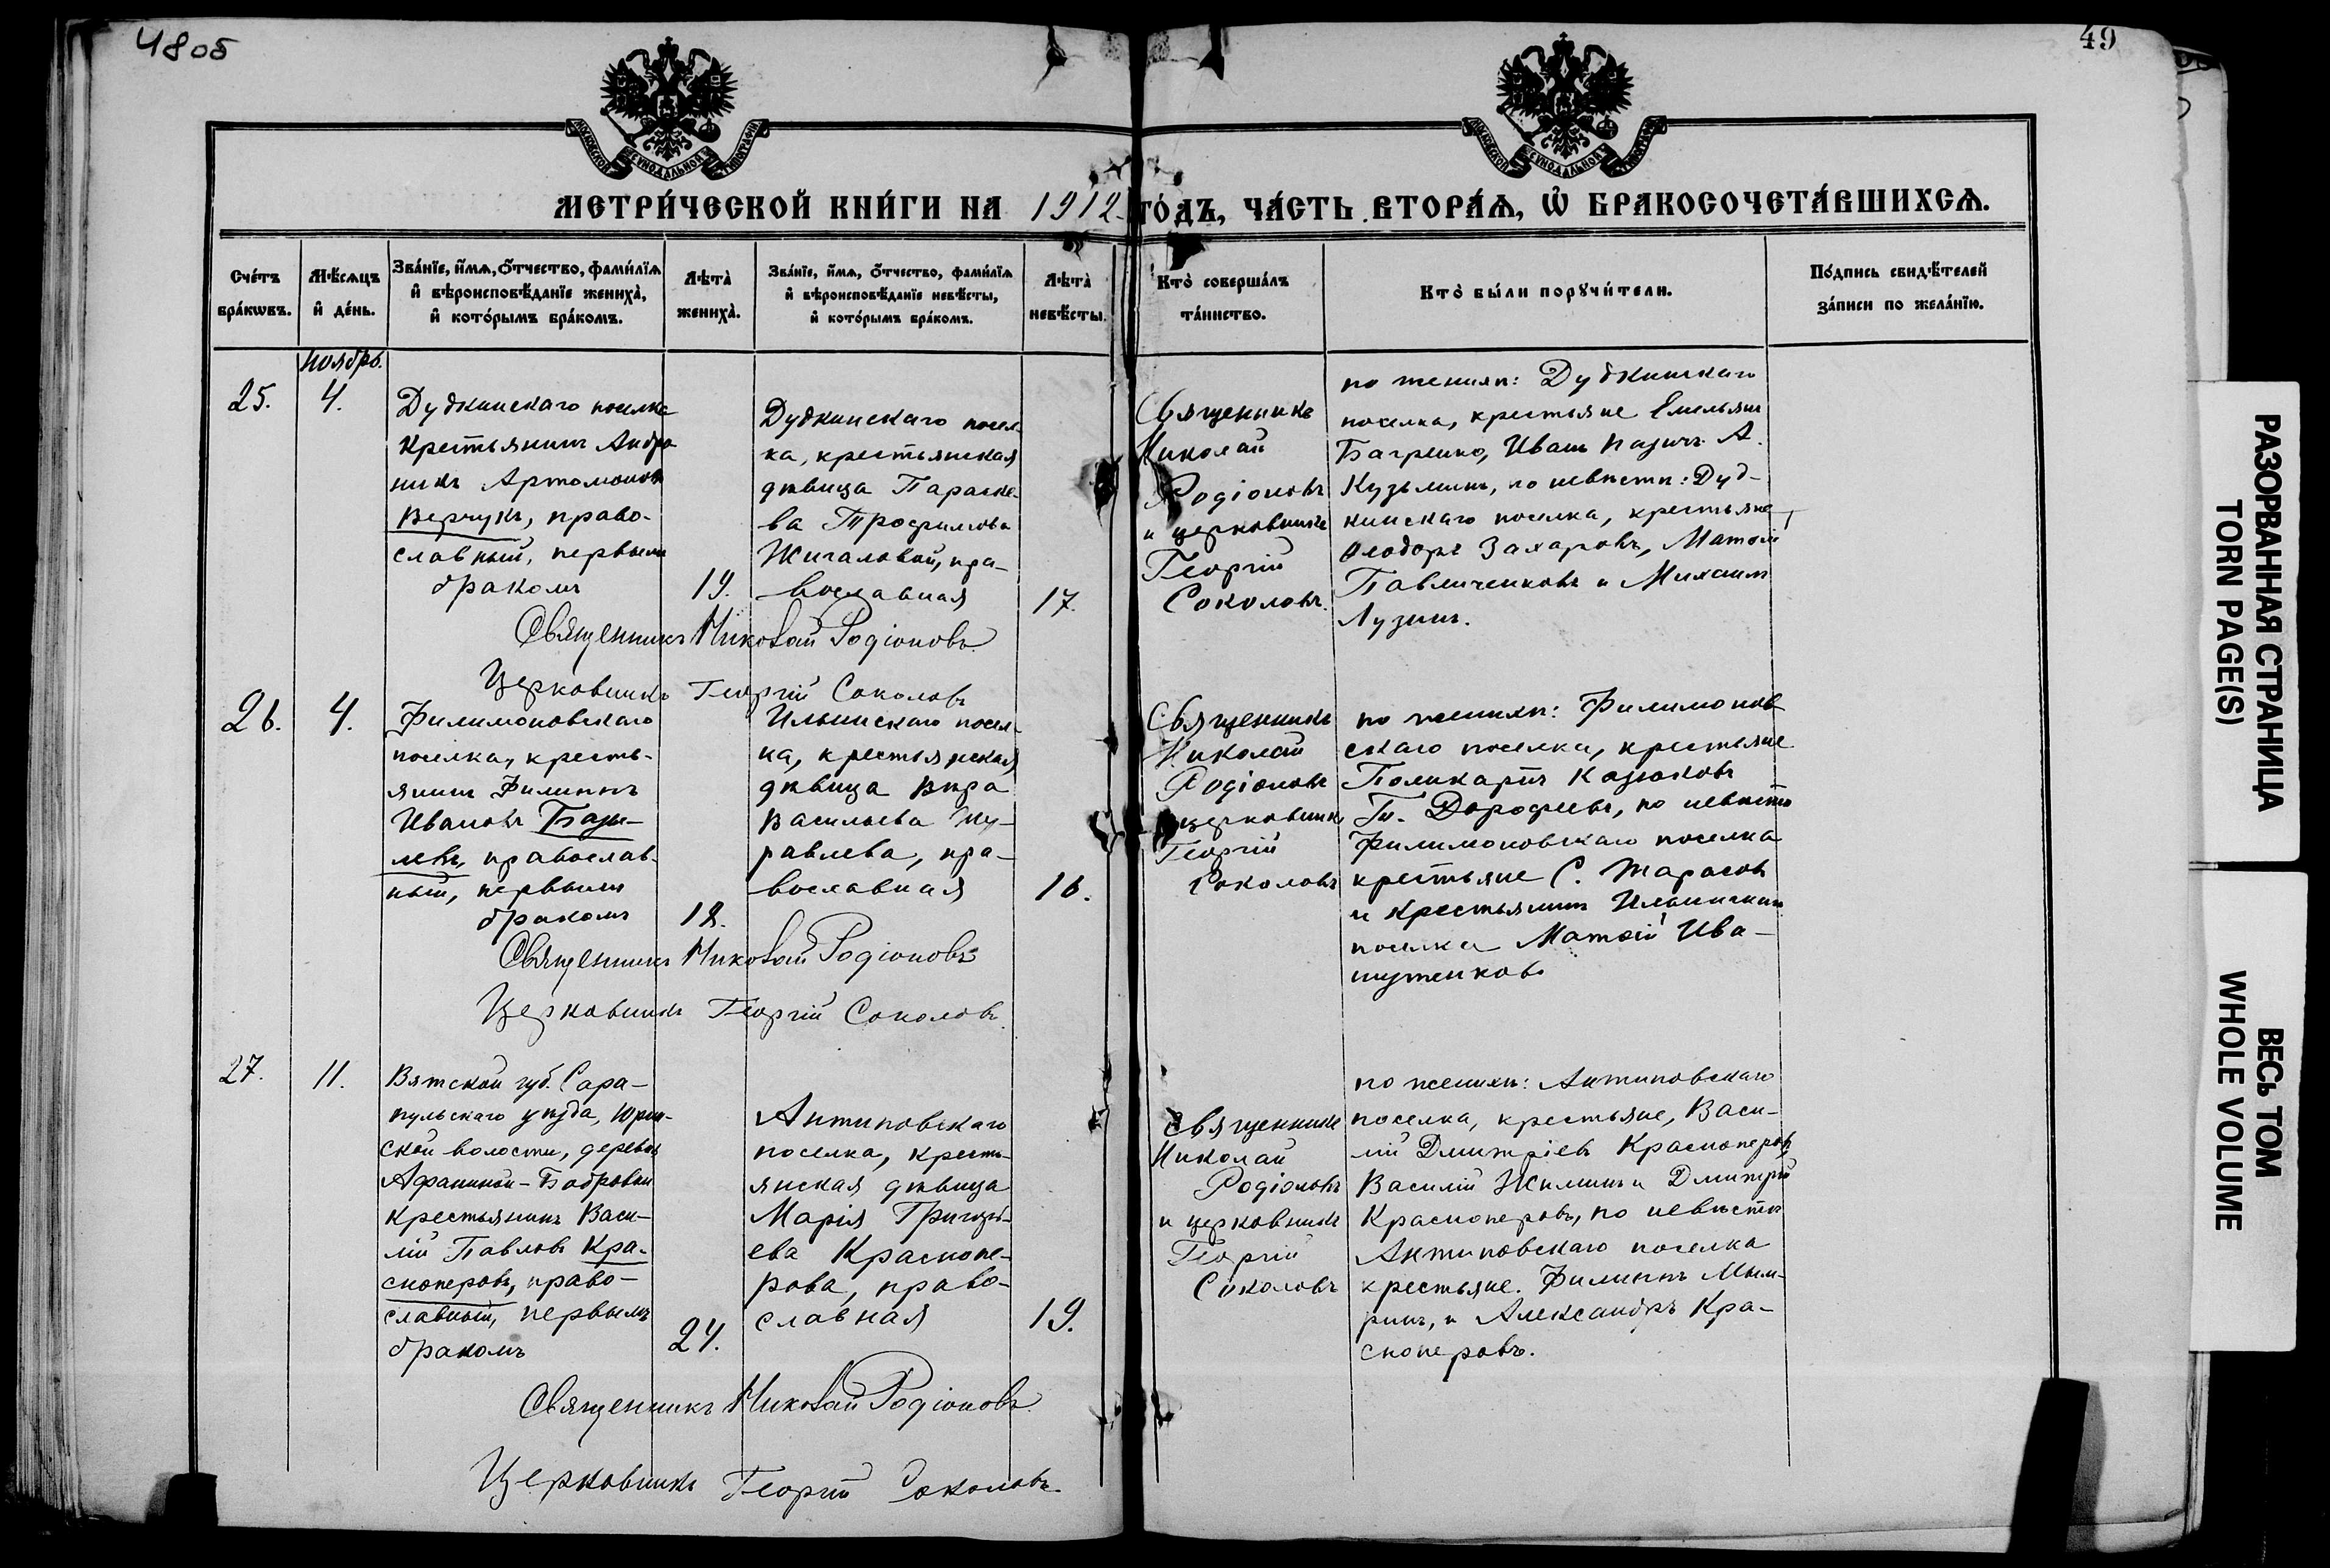 4805
49
МОСКОВСКОЙ СѴНОДАЛЬНОЙ ТИПОГРАФІИ
МОСКОВСКОЙ СѴНОДАЛЬНОЙ ТИПОГРАФІИ
МЕТРИ́ЧЕСКОЙ КНИ́ГИ НА 1912 ГО́ДЪ, ЧА́СТЬ ВТОРА́Ѧ, Ѡ҆ БРАКОСОЧЕТА́ВШИХСѦ.
Сче́тъ бра́кѡвъ.
Мѣ́сѧцъ и҆ де́нь.
Зва́нїе, и҆́мѧ, ѻ҆́тчество, фами́лїѧ и҆ вѣроисповѣ́данїе жениха̀, и҆ кото́рымъ бра́комъ.
Лѣта̀ жениха̀.
Зва́нїе, и҆́мѧ, ѻ҆́тчество, фами́лїѧ и҆ вѣроисповѣ́данїе невѣ́сты, и҆ кото́рымъ бра́комъ.
Лѣта̀ невѣ́сты.
Кто̀ соверша́лъ та́инство.
Кто̀ бы́ли порꙋчи́тели.
По́дпись свидѣ́телей за́писи по жела́нїю.
Ноябрь.
25.
4.
Дудкинскаго поселка
крестьянинъ Андро
никъ Артомоновъ
Верчукъ, право-
славный, первымъ
бракомъ
19.
Дудкинскаго посел-
ка, крестьянская
дѣвица Параске-
ва Трофимова
Жигаловой, пра-
вославная
17.
Священникъ
Николай
Родіоновъ
и церковникъ
Георгій
Соколовъ.
по женихѣ: Дудкинскаго
поселка, крестьяне Емельянъ
Багренко, Иванъ А.
Кузьминъ, по невѣстѣ: Дуд-
кинскаго поселка, крестьяне
Ѳеодоръ Захаровъ, Матѳій
Павличенковъ и Михаилъ
Лузинъ.
Священникъ Николай Родіоновъ
Церковникъ Георгій Соколовъ
26.
4.
Филимоновскаго
поселка, кресть-
янинъ Филиппъ
Ивановъ Базы-
левъ, православ-
ный, первымъ
бракомъ
18.
Ильинскаго посел-
ка, крестьянская
дѣвица Вѣра
Васильева Жу-
равлева, пра-
вославная
16.
Священникъ
Николай
Родіоновъ
и церковникъ
Георгій
Соколовъ
по женихѣ: Филимонов
скаго поселка, крестьяне
Поликарпъ Казаковъ
Дорофеевъ, по невѣстѣ
Филимоновскаго поселка
крестьяне С. Тарасовъ
и крестьянинъ Ильинскаго
поселка Матѳій Ива-
шутенковъ
Священникъ Николай Родіоновъ
Церковникъ Георгій Соколовъ.
27.
11.
Вятской губ. Сара-
пульскаго уѣзда, Юрин-
ской волости, деревни
Афаниной-Бобровки
крестьянинъ Васи-
лій Павловъ Кра-
сноперовъ, право-
славный, первымъ
бракомъ
24.
Антиповскаго
поселка, кресть-
янская дѣвица
Марія Григорь-
ева Краснопе-
рова, право-
славная
19.
Священникъ
Николай
Родіоновъ
и церковникъ
Георгій
Соколовъ
по женихѣ: Антиповскаго
поселка, крестьяне, Васи-
лій Дмитріевъ Красноперовъ,
Василій Жилинъ и Дмитрій
Красноперовъ, по невѣстѣ
Антиповскаго поселка
крестьяне. Филиппъ Мым-
ринъ, и Александръ Кра-
сноперовъ.
Священникъ Николай Родіоновъ
Церковникъ Георгій Соколовъ.
РАЗОРВАННАЯ СТРАНИЦА
TORN PAGE(S)
ВЕСЬ ТОМ
WHOLE VOLUME